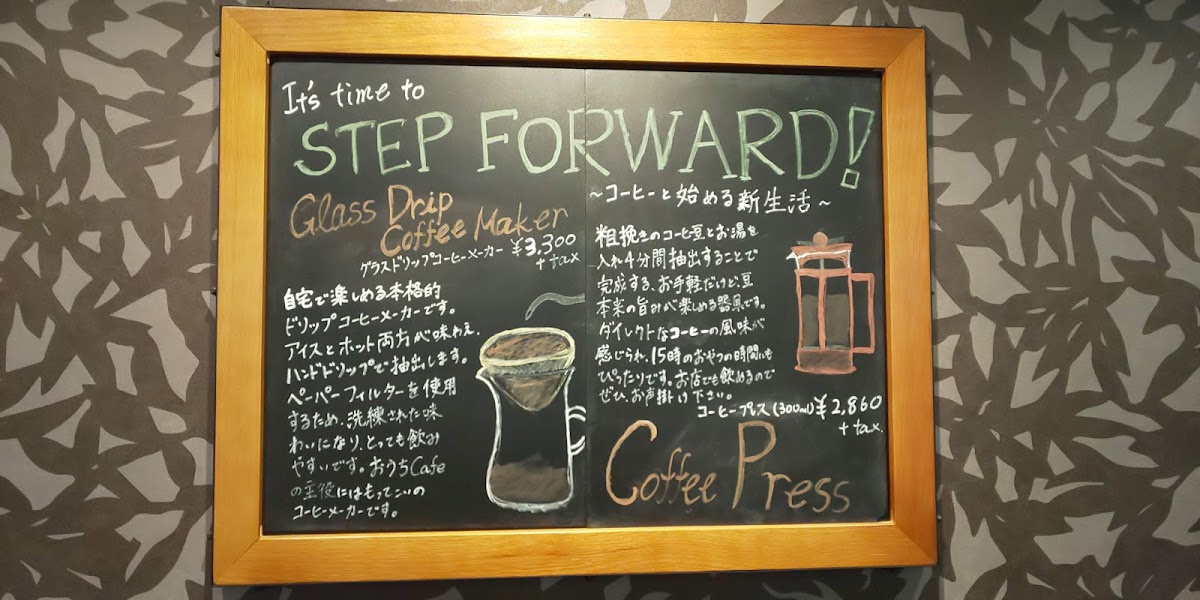 It's time to
STEP FORWARD!
Glass Drip
Coffee Maker
グラスドリップコーヒーメーカー ¥3,300
+tax
自宅で楽しめる本格的
ドリップコーヒーメーカーです。
アイスとホット両方が味わえ、
ハンドドリップで抽出します。
ペーパーフィルターを使用
するため、洗練された味
わいになり、とっても飲み
やすいです。おうちCafe
の主役にはもってこいの
コーヒーメーカーです。
~コーヒーと始める新生活~
粗挽きのコーヒー豆とお湯を
入れ4分間抽出することで
完成する、お手軽だけど、豆
本来の旨みが楽しめる器具です。
ダイレクトなコーヒーの風味が
感じられ、15時のおやつの時間にも
ぴったりです。お店でも飲めるので
ぜひ、お声掛け下さい。
コーヒープレス(300ml)¥2,860
+tax.
Coffee Press